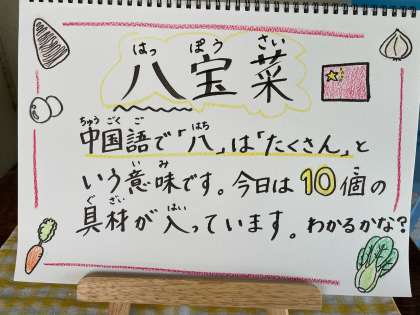 はっ ぽう さい
八宝菜
ちゅう ごく ご はち
中国語で「八」は「たくさん」と
い み
いう意味です。今日は10個の
ぐ ざい はい
具材が入っています。わかるかな?